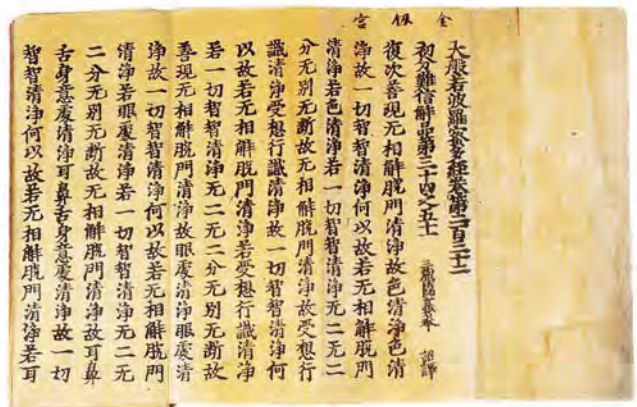 金 宮
大般若波羅蜜多經卷第二百三十二
初分難信解品第三十四之五十一
三藏法師玄奘奉 詔譯
復次善現无相解脫門清淨故色清淨色清
淨故一切智智清淨何以故若无相解脫門
清淨若色清淨若一切智智清淨无二无二
分无別无斷故无相解脫門清淨故受想行
識清淨受想行識清淨故一切智智清淨何
以故若无相解脫門清淨若受想行識清淨
若一切智智清淨无二无二分无別无斷故
善現无相解脫門清淨故眼處清淨眼處清
淨故一切智智清淨何以故若无相解脫門
清淨若眼處清淨若一切智智清淨无二无
二分无別无斷故无相解脫門清淨故耳鼻
舌身意處清淨耳鼻舌身意處清淨故一切
智智清淨何以故若无相解脫門清淨若耳